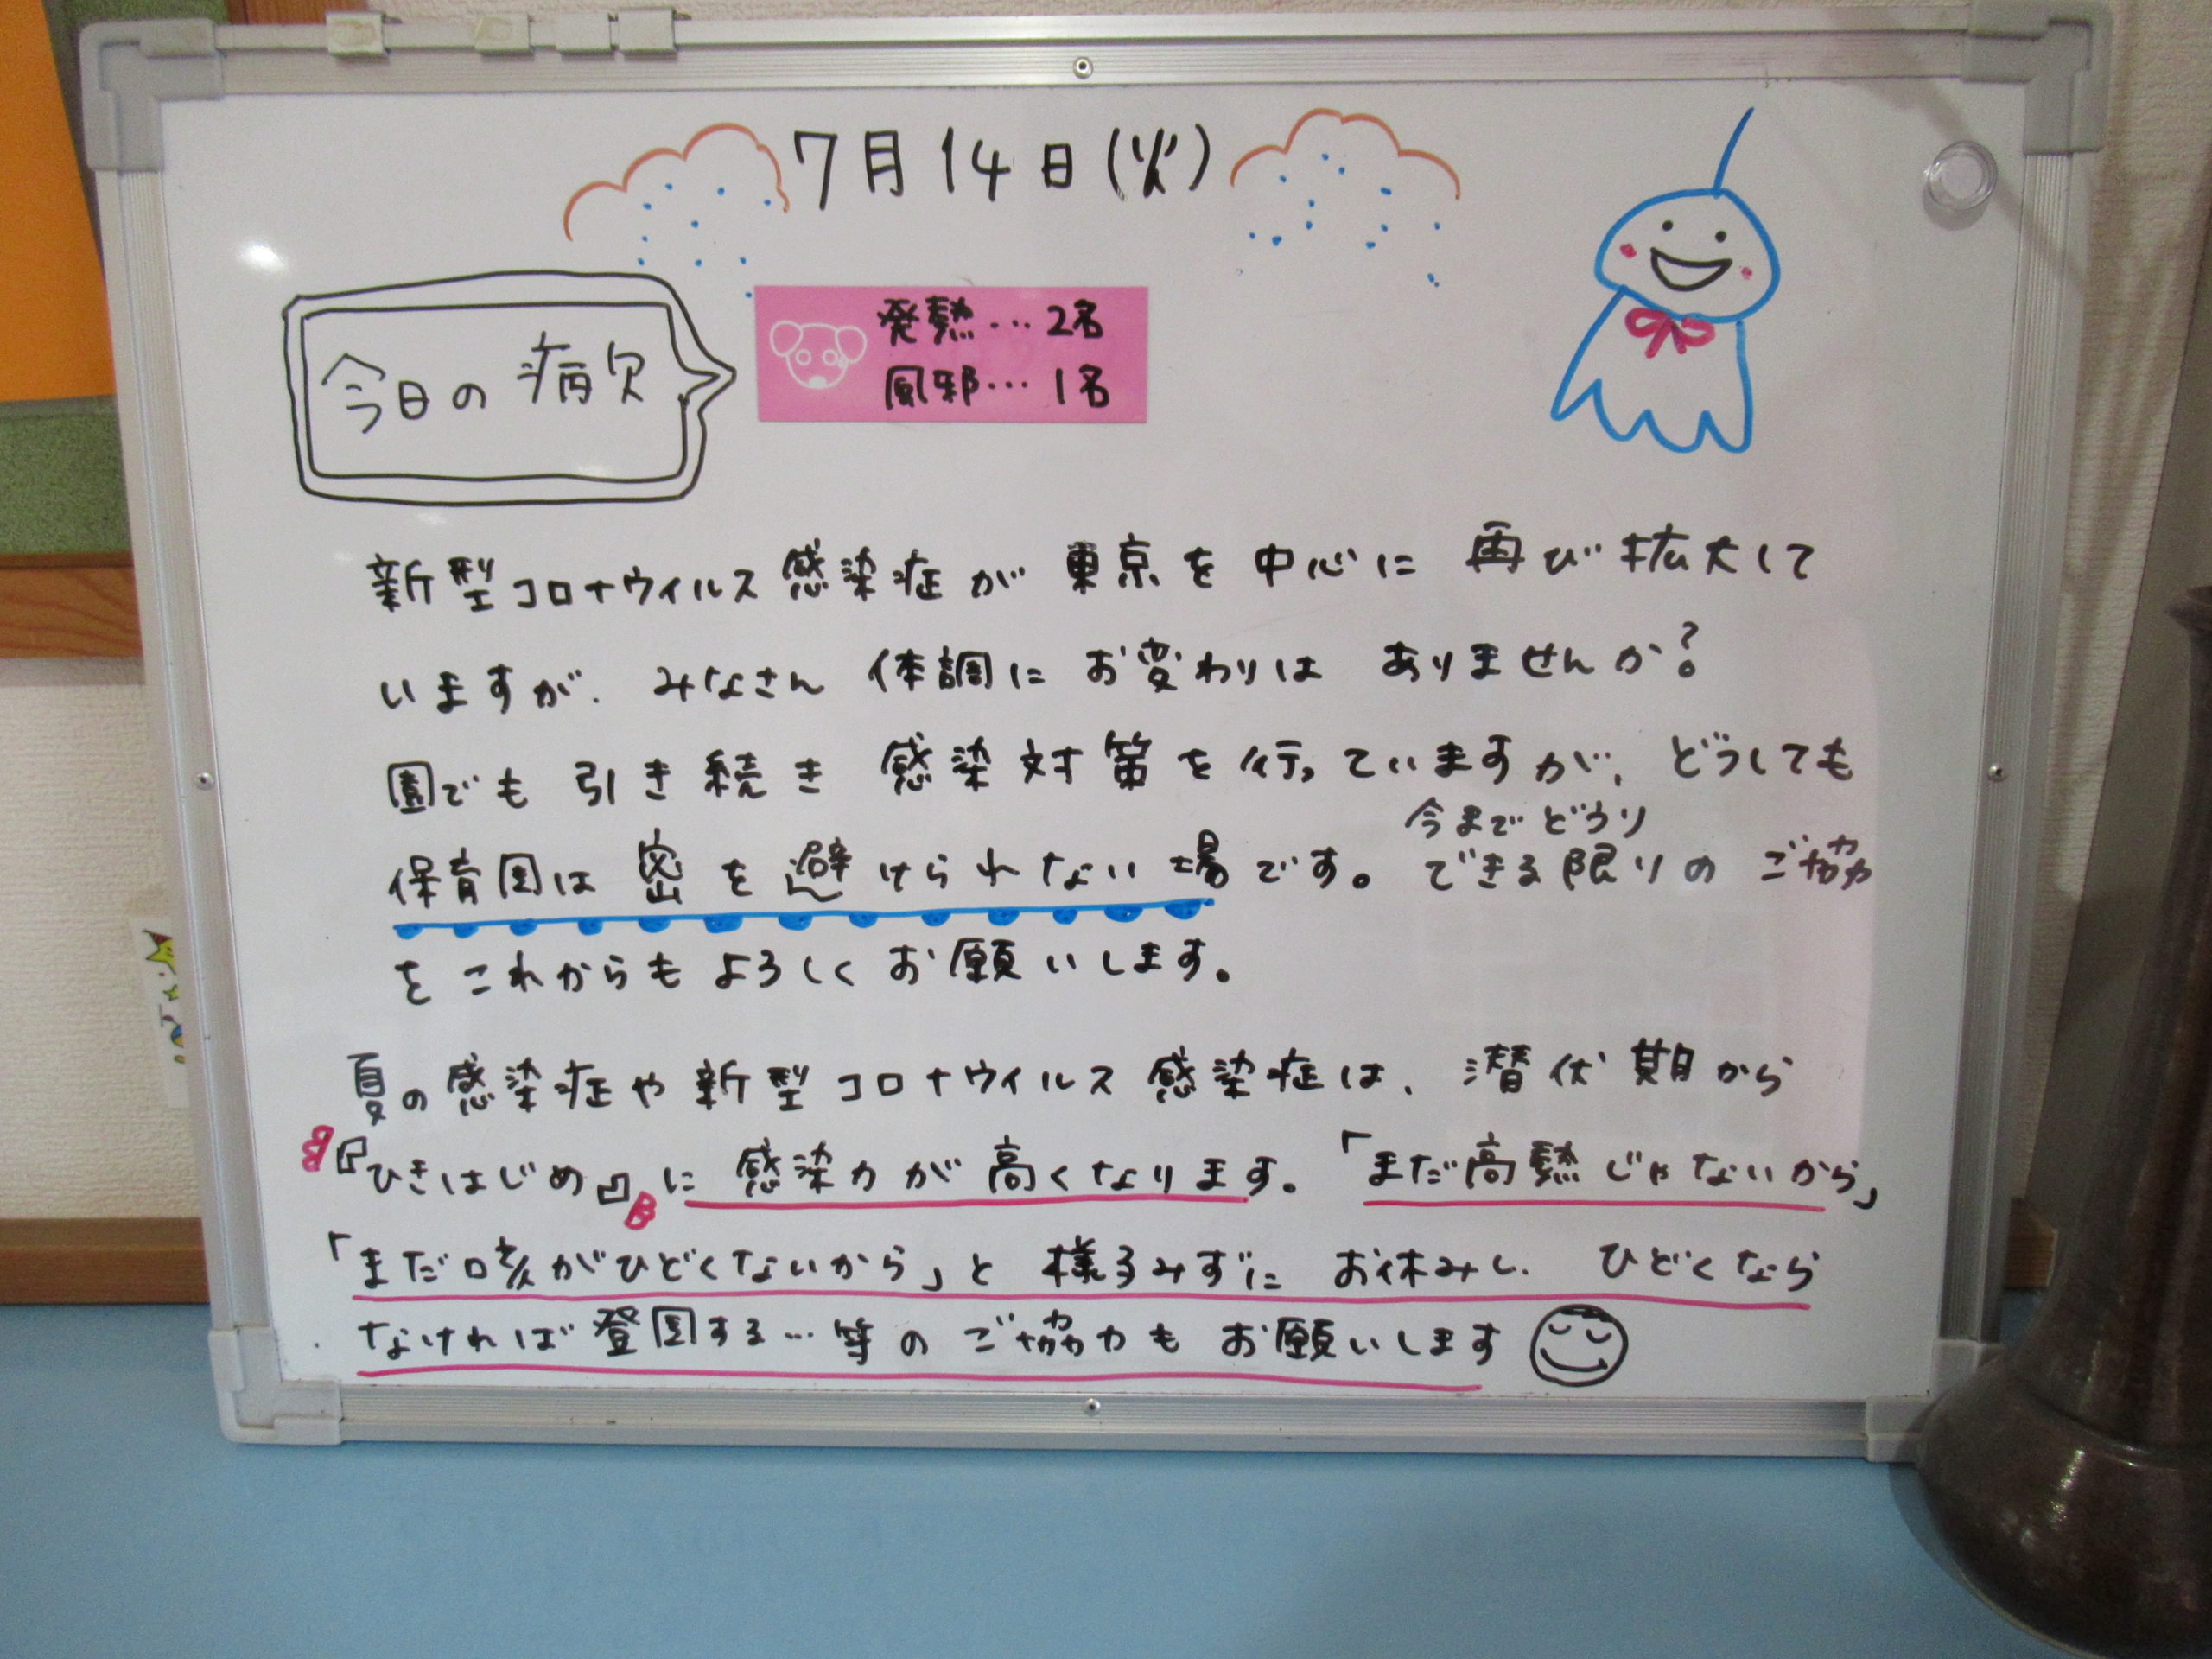 7月14日(火)
今日の病欠
発熱…2名
風邪…1名
新型コロナウィルス感染症が東京を中心に再び拡大して
いますが、みなさん体調にお変わりはありませんか?
園でも引き続き感染対策を行っていますが、どうしても
今までどうり
保育園は密を避けられない場です。できる限りのご協力
をこれからもよろしくお願いします。
夏の感染症や新型コロナウイルス感染症は、潜伏期から
『ひきはじめ』に感染力が高くなります。「まだ高熱じゃないから」
「まだ咳がひどくないから」と様子みずにお休みし、ひどくなら
なければ登園する…等のご協力もお願いします